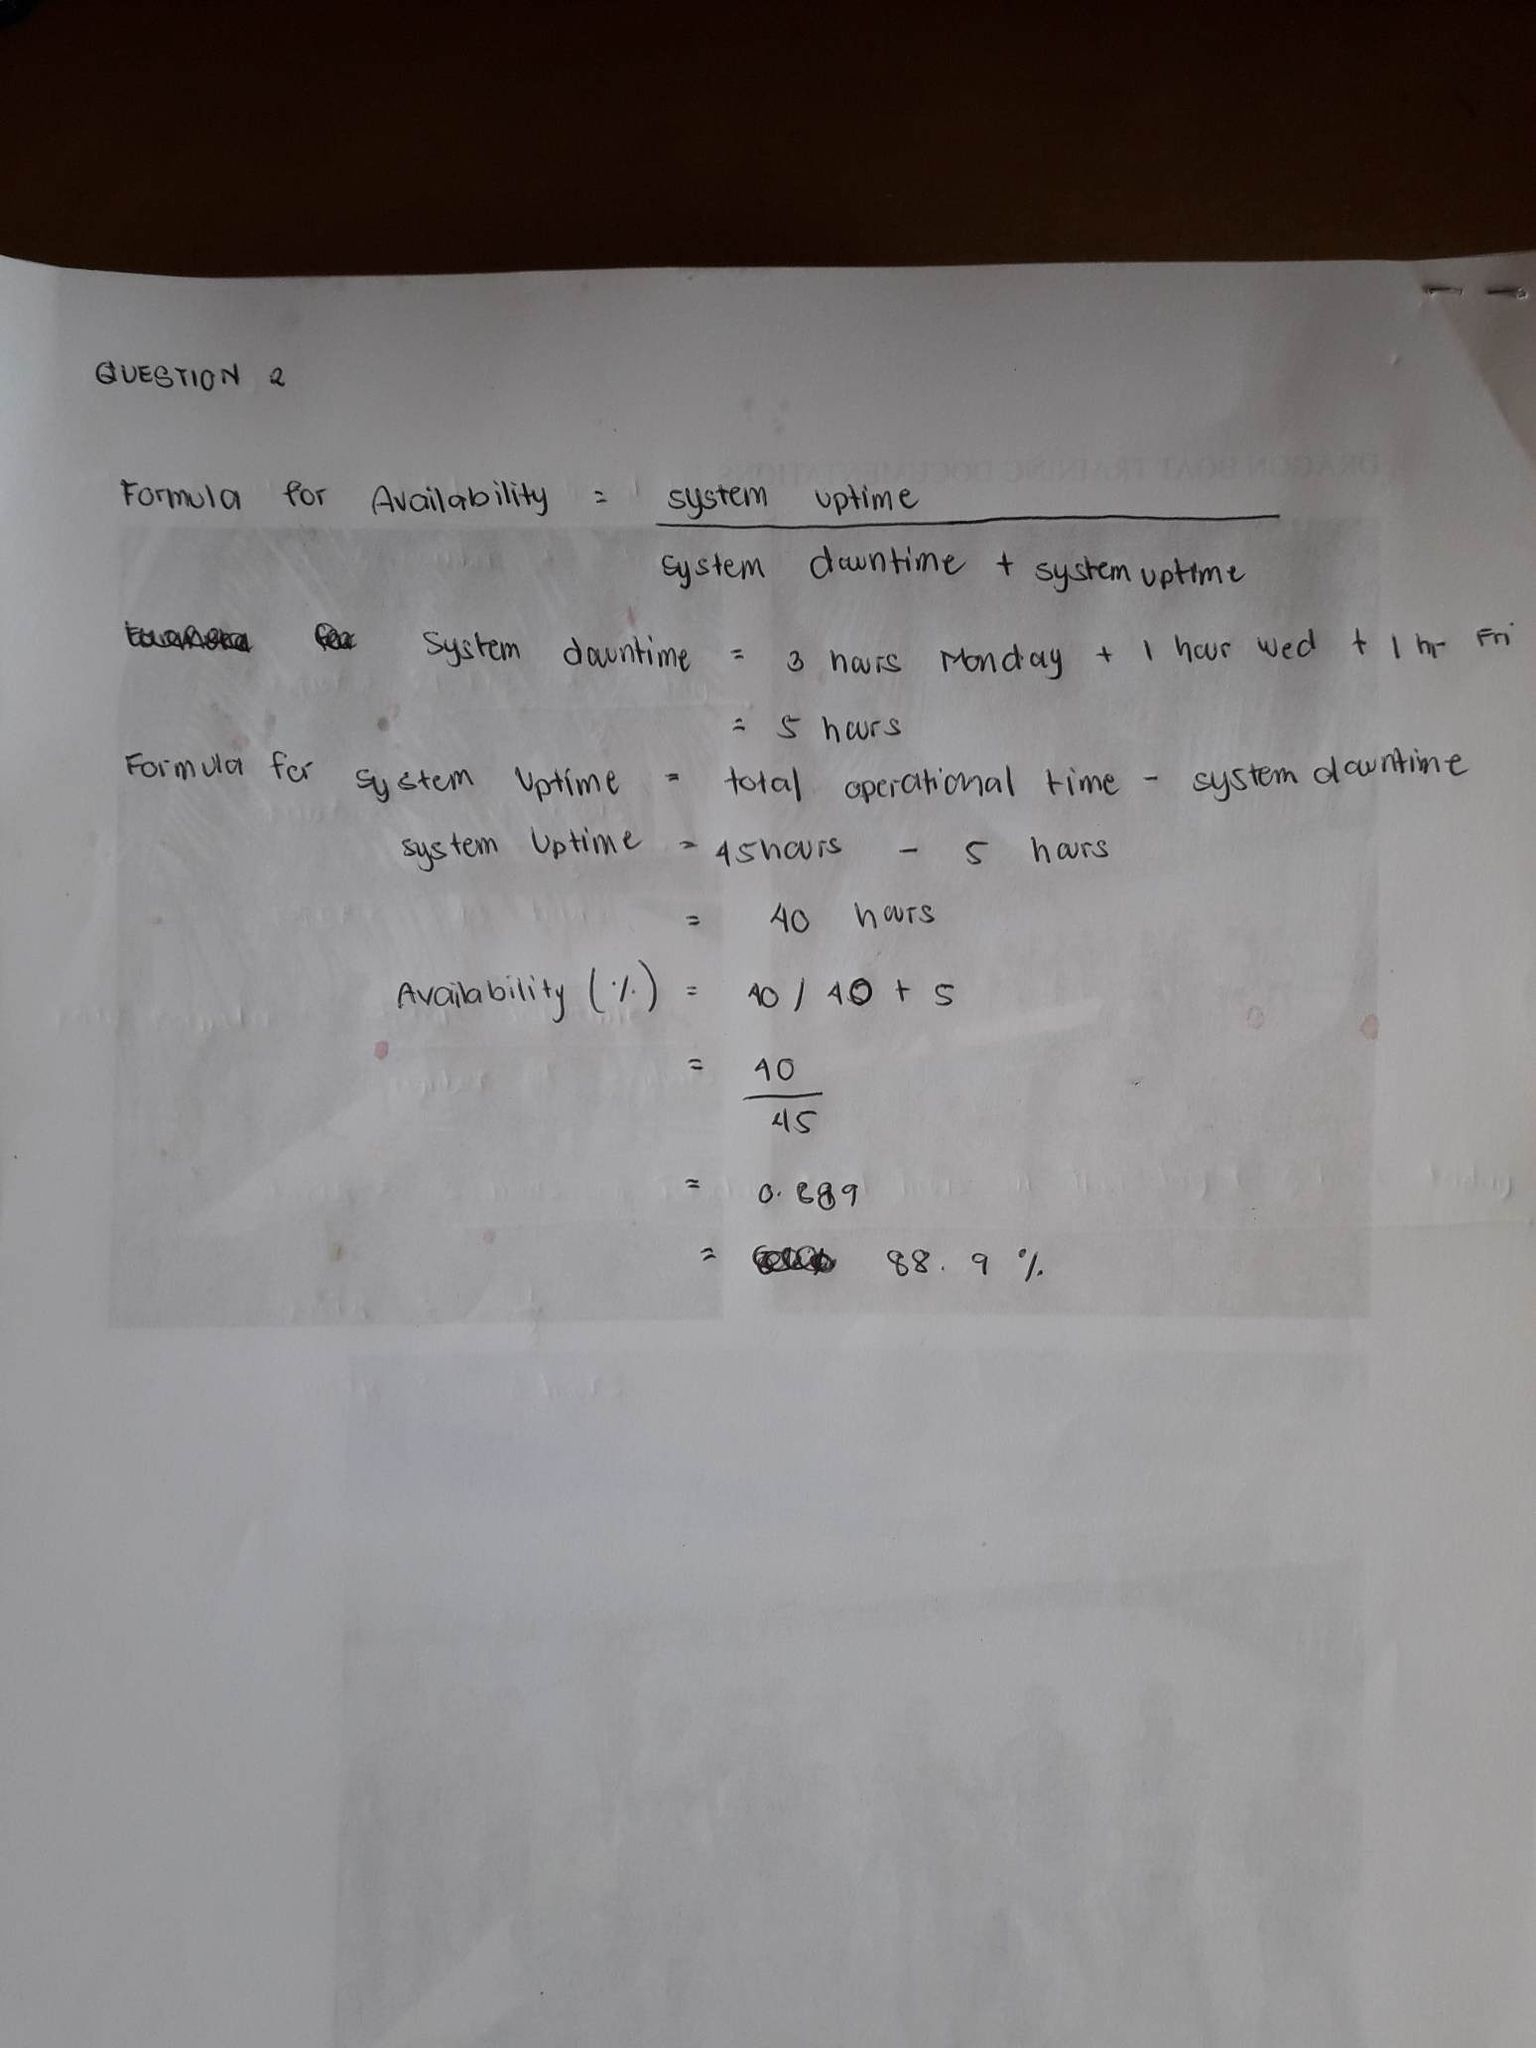 QUESTION 2
Formula for Availability = system uptime
system downtime + system uptime
System downtime = 3 hours Monday + 1 hour Wed + 1 hr Fri
= 5 hours
Formula for system Uptime = total operational time - system downtime
system Uptime = 45 hours - 5 hours
= 40 hours
Availability (%) = 40 / 40 + 5
= 40
45
= 0.889
= 88.9 %